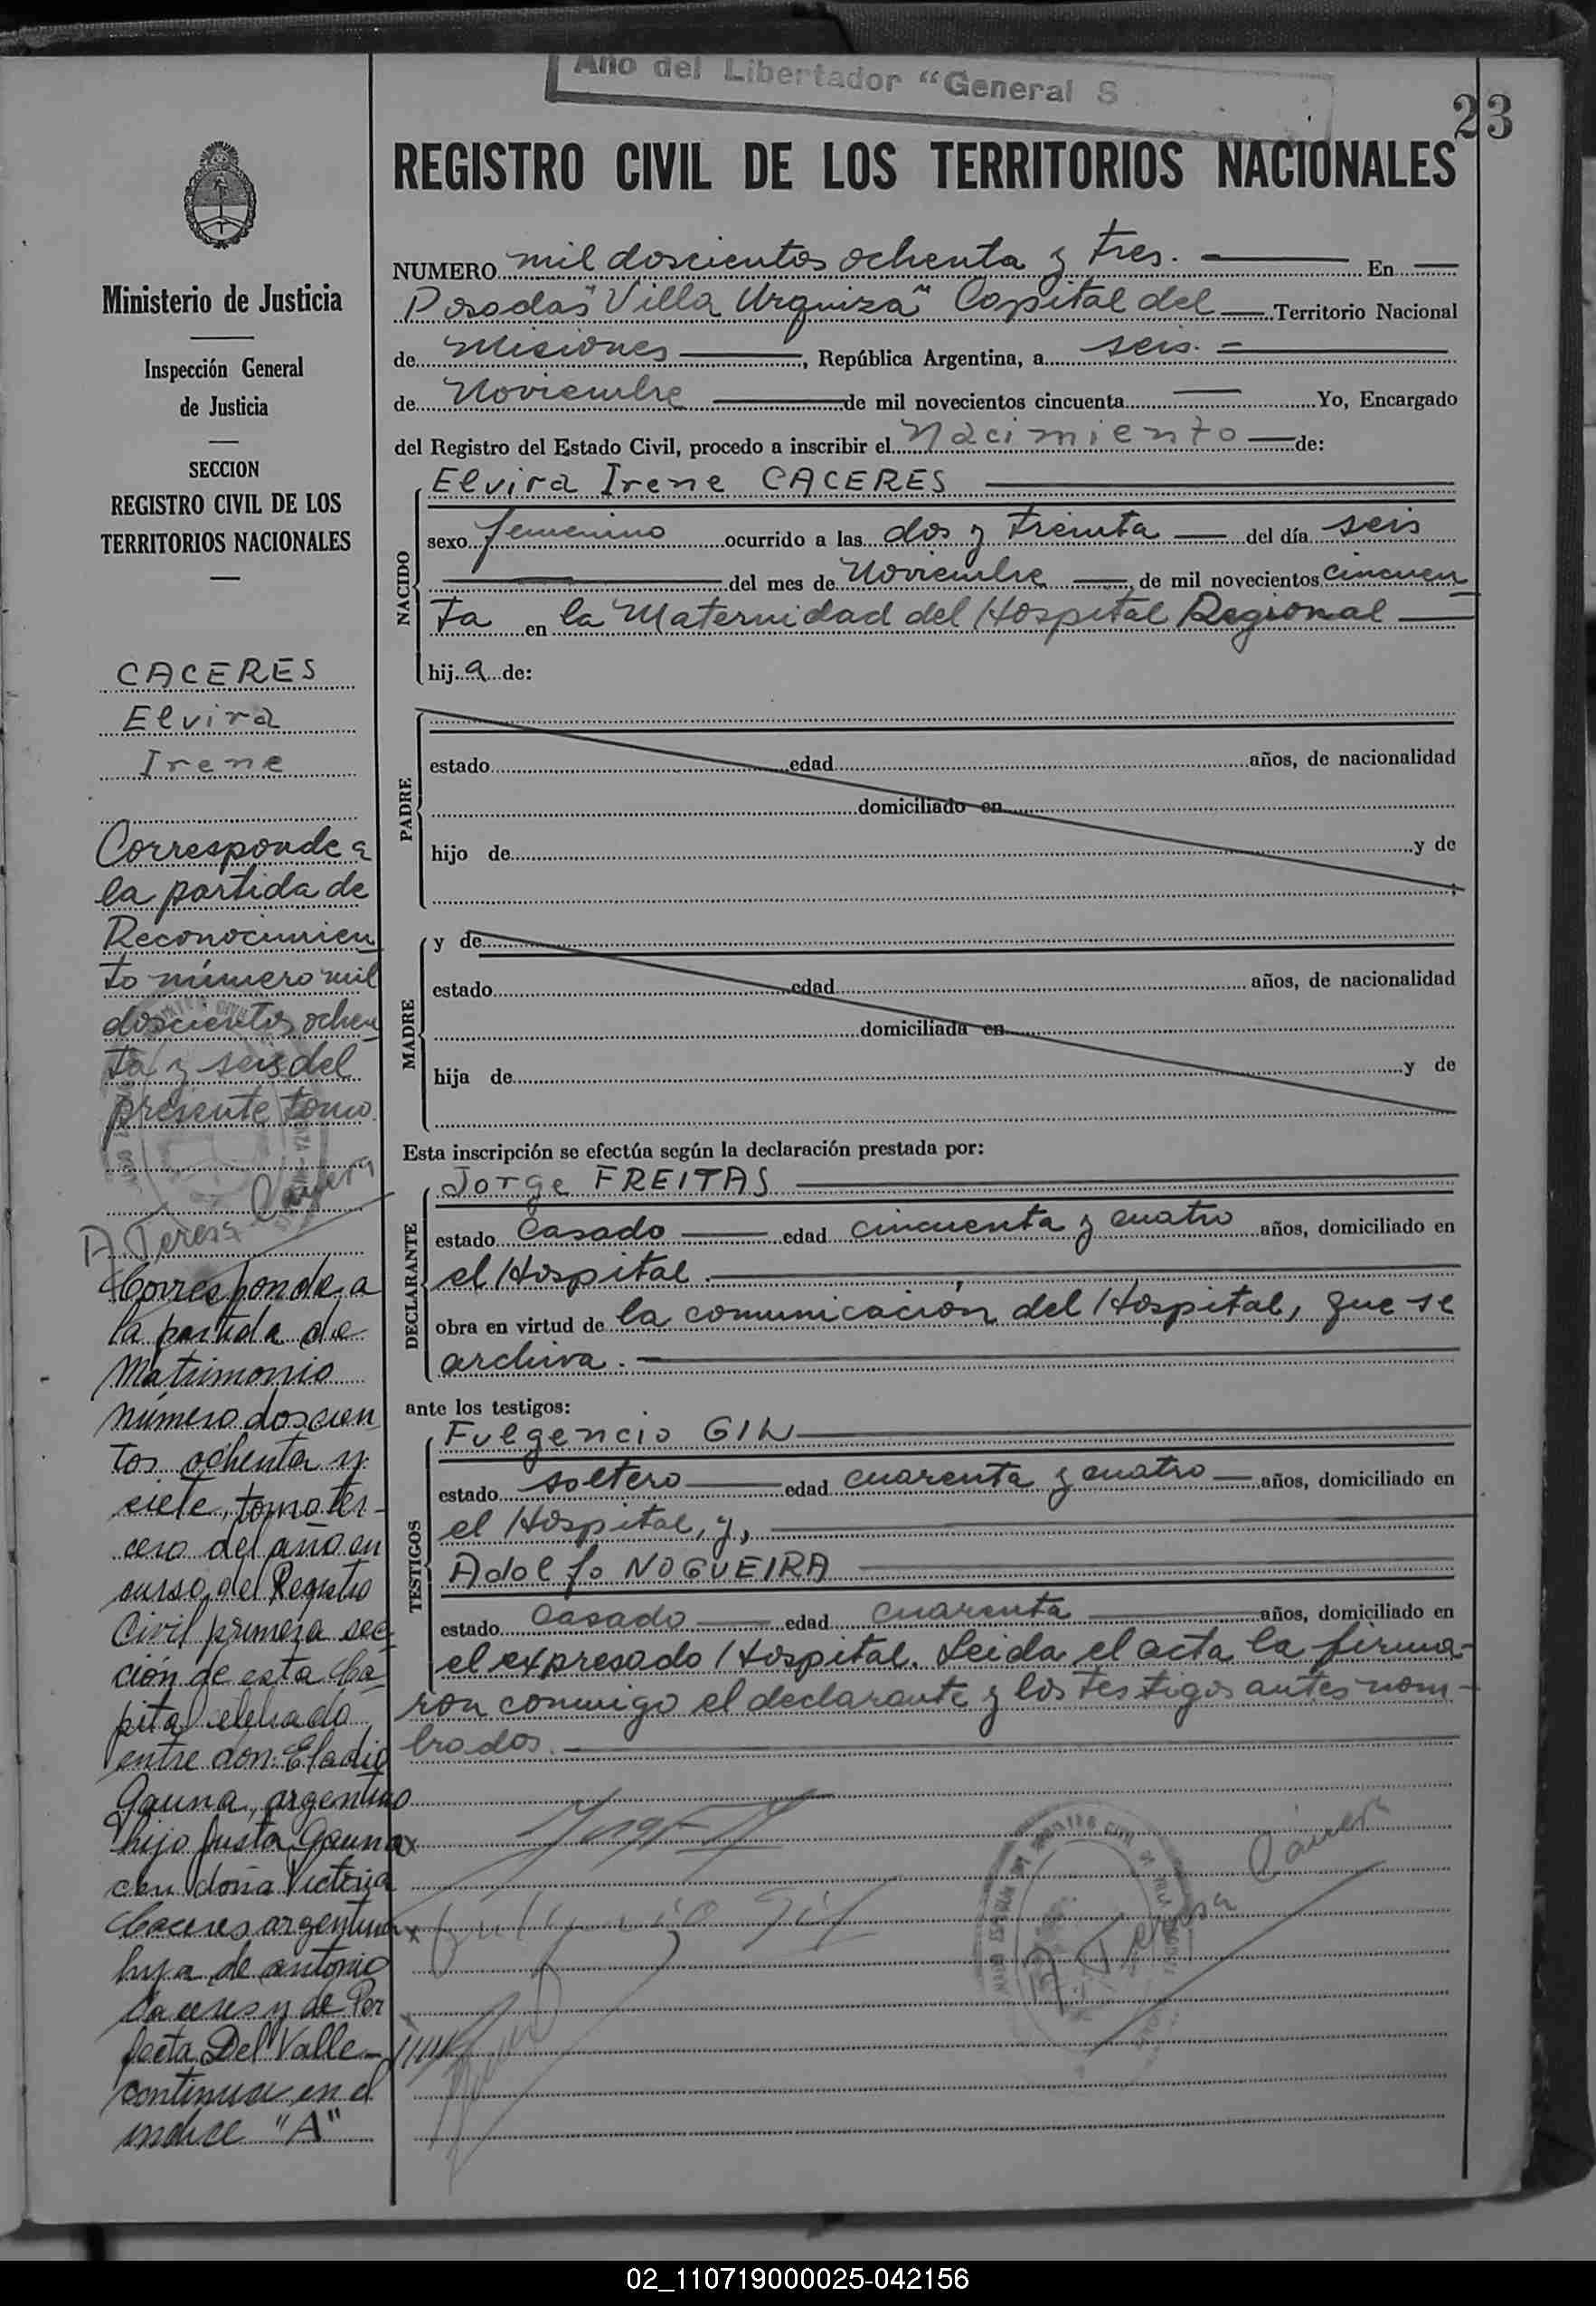 Año del Libertador "General S
23
REGISTRO CIVIL DE LOS TERRITORIOS NACIONALES
NUMERO mil doscientos ochenta y tres. En
Posadas "Villa Urquiza" Capital del Territorio Nacional
de Misiones, República Argentina, a seis.
de Noviembre de mil novecientos cincuenta Yo, Encargado
del Registro del Estado Civil, procedo a inscribir el Nacimiento de:
NACIDO
Elvira Irene CACERES
sexo femenino ocurrido a las dos y treinta del día seis
del mes de Noviembre, de mil novecientos cincuen
ta en la Maternidad del Hospital Regional
hija de:
PADRE
estado edad años, de nacionalidad
domiciliado en
hijo de y de
;
MADRE
y de
estado edad años, de nacionalidad
domiciliada en
hija de y de
Esta inscripción se efectúa según la declaración prestada por:
DECLARANTE
Jorge FREITAS
estado Casado edad cincuenta y cuatro años, domiciliado en
el Hospital.
obra en virtud de la comunicación del Hospital, que se
archiva.
ante los testigos:
TESTIGOS
Fulgencio GIL
estado soltero edad cuarenta y cuatro años, domiciliado en
el Hospital, y,
Adolfo NOGUEIRA
estado Casado edad cuarenta años, domiciliado en
el expresado Hospital. Leida el acta la firma-
ron conmigo el declarante y los testigos antes nom-
brados.
Fulgencio Gil
A. Teresa
Ministerio de Justicia
Inspección General
de Justicia
SECCION
REGISTRO CIVIL DE LOS
TERRITORIOS NACIONALES
CACERES
Elvira
Irene
Corresponde a
la partida de
Reconocimien
to número mil
doscientos ochen
ta y seis del
presente tomo
A Teresa
Corresponde a
la partida de
Matrimonio
número doscien
tos ochenta y
siete, tomo ter-
cero del año en
curso, del Registro
Civil primera sec
ción de esta Ca
pital celebrado
entre don: Eladio
Gauna, argentino
hijo Justa Gauna
con doña Victoria
Caceres argentina
hija de antonio
Caceres y de Per
fecta Del Valle-
continua en el
indice "A"
02_110719000025-042156